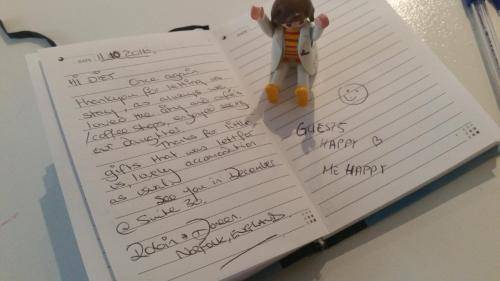 DATE 11.10.2016
Hi DIET Once again
thankyou for letting us
stay, as always we
loved the and cafe's
/coffee shops, enjoyed seeing
our daughter.
Thanks for little
gifts that was left for
us, lovely accommodation
as usual.
See you in December
@ Suite 32.
Robin & Doreen.
NORFOLK, ENGLAND
GUESTS
HAPPY
ME HAPPY